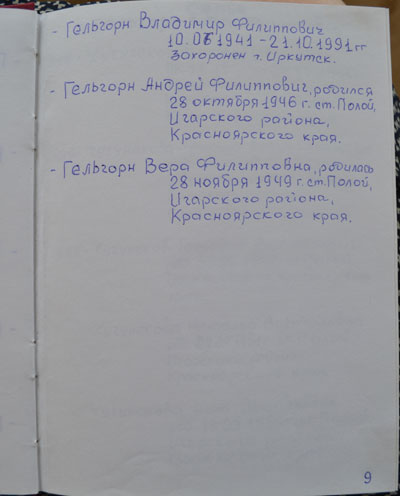 - Гельгорн Владимир Филиппович
10. 1941 - 21.10.1991 гг
Захоронен г. Иркутск.
- Гельгорн Андрей Филиппович, родился
28 октября 1946 г. ст. Полой,
Игарского района,
Красноярского края.
- Гельгорн Вера Филипповна, родилась
28 ноября 1949 г. ст. Полой,
Игарского района,
Красноярского края.
9